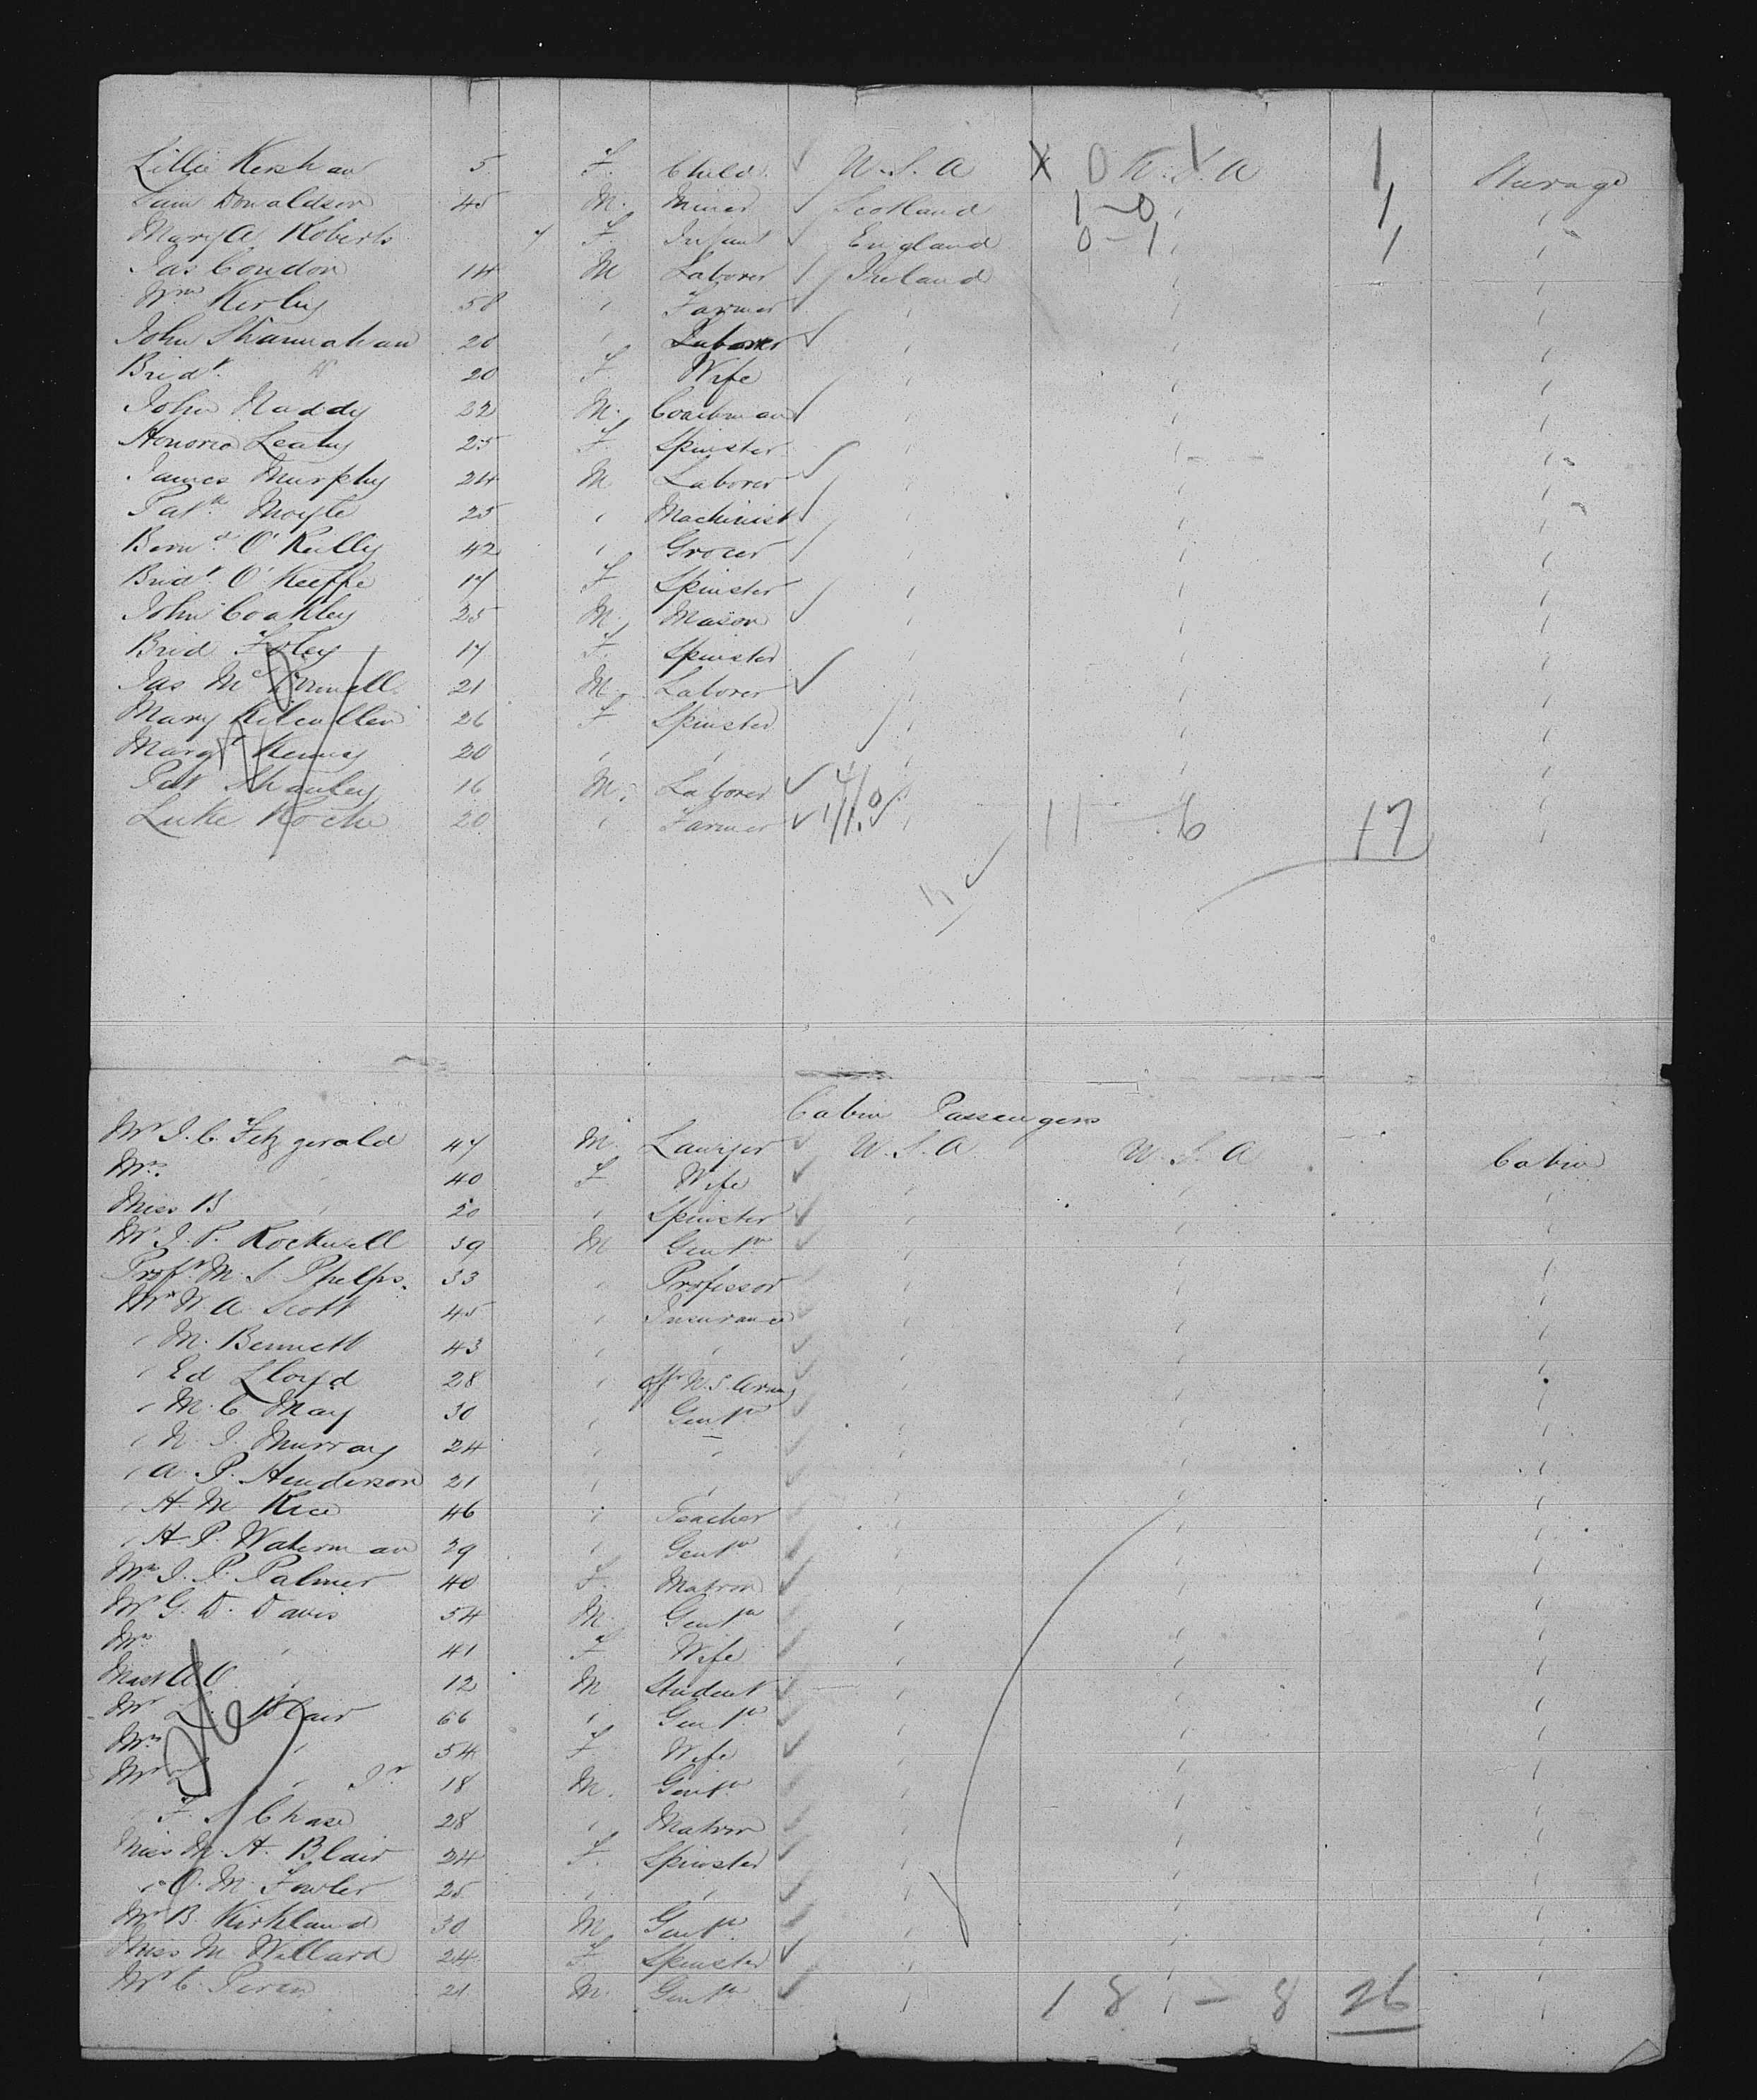 Lillie Kershaw 5 F. Child ✓ U.S.A X 0 1 U.S.A 1 Steerage
Sam Donaldson 45 M. Miner ✓ Scotland 1-0 " 1 "
Mary A Roberts 7 F. Infant ✓ England 0-1 " 1 "
Jas Condon 14 M Laborer ✓ Ireland " "
Wm Kirby 58 " Farmer ✓ " " "
John Shannahan 26 " Laborer ✓ " " "
Bridt. " 20 F. Wife " " "
John Naddy 22 M. Coachman ✓ " " "
Honoria Leahy 25 F. Spinster " " "
James Murphy 24 M Laborer ✓ " " "
Patk. Moyle 25 " Machinist ✓ " " "
Bernd. O'Reilly 42 " Grocer ✓ " " "
Bridt. O'Keeffe 17 F Spinster " " "
John Coakley 25 M. Mason ✓ " " "
Brid Foley 17 F. Spinster " " "
Jas McDonnell 21 M. Laborer ✓ " " "
Mary Kilcullen 26 F Spinster " " "
Margt Kenny 20 " " " " "
Pat Shanley 16 M. Laborer ✓ " " "
Luke Roche 20 " Farmer ✓ " 11-6 17 "
Cabin Passengers
Mr J.C. Fitzgerald 47 M. Lawyer ✓ U.S.A U.S.A Cabin
Mrs. " 40 F Wife ✓ " " "
Miss B " 20 " Spinster ✓ " " "
Mr J.P. Rockwell 39 M Gentn ✓ " " "
Profr M.S. Phelps. 33 " Professor " " "
Mr W.A. Scott 45 " Insurance ✓ " " "
" M. Bennett 43 " " ✓ " " "
" Ed Lloyd 28 " Offr U.S. Army ✓ " " "
" M.C. May 30 " Gentn ✓ " " "
" N.J. Murray 24 " " ✓ " " "
" A.P. Henderson 21 " " ✓ " " "
" H.M. Rice 46 " Teacher ✓ " " "
" H.P. Waterman 29 " Gentn ✓ " " "
Mrs J.P. Palmer 40 F. Matron ✓ " " "
Mr G.D. Davis 54 M. Gentn ✓ " " "
Mrs " 41 F Wife ✓ " " "
Mast A.O " 12 M Student ✓ " " "
Mr L. Blair 66 " Gentn ✓ " " "
Mrs " 54 F Wife ✓ " " "
Mr L " Jr 18 M. Gentn ✓ " " "
" F.S. Chase 28 " Matron ✓ " " "
Miss M.A. Blair 24 F. Spinster ✓ " " "
" O.M. Fowler 25 " " ✓ " " "
Mr B. Kirkland 30 M Gentn. ✓ " " "
Miss M Willard 24 F. Spinster ✓ " " "
Mr C. 21 M. Gentn ✓ " 18-8 26 "